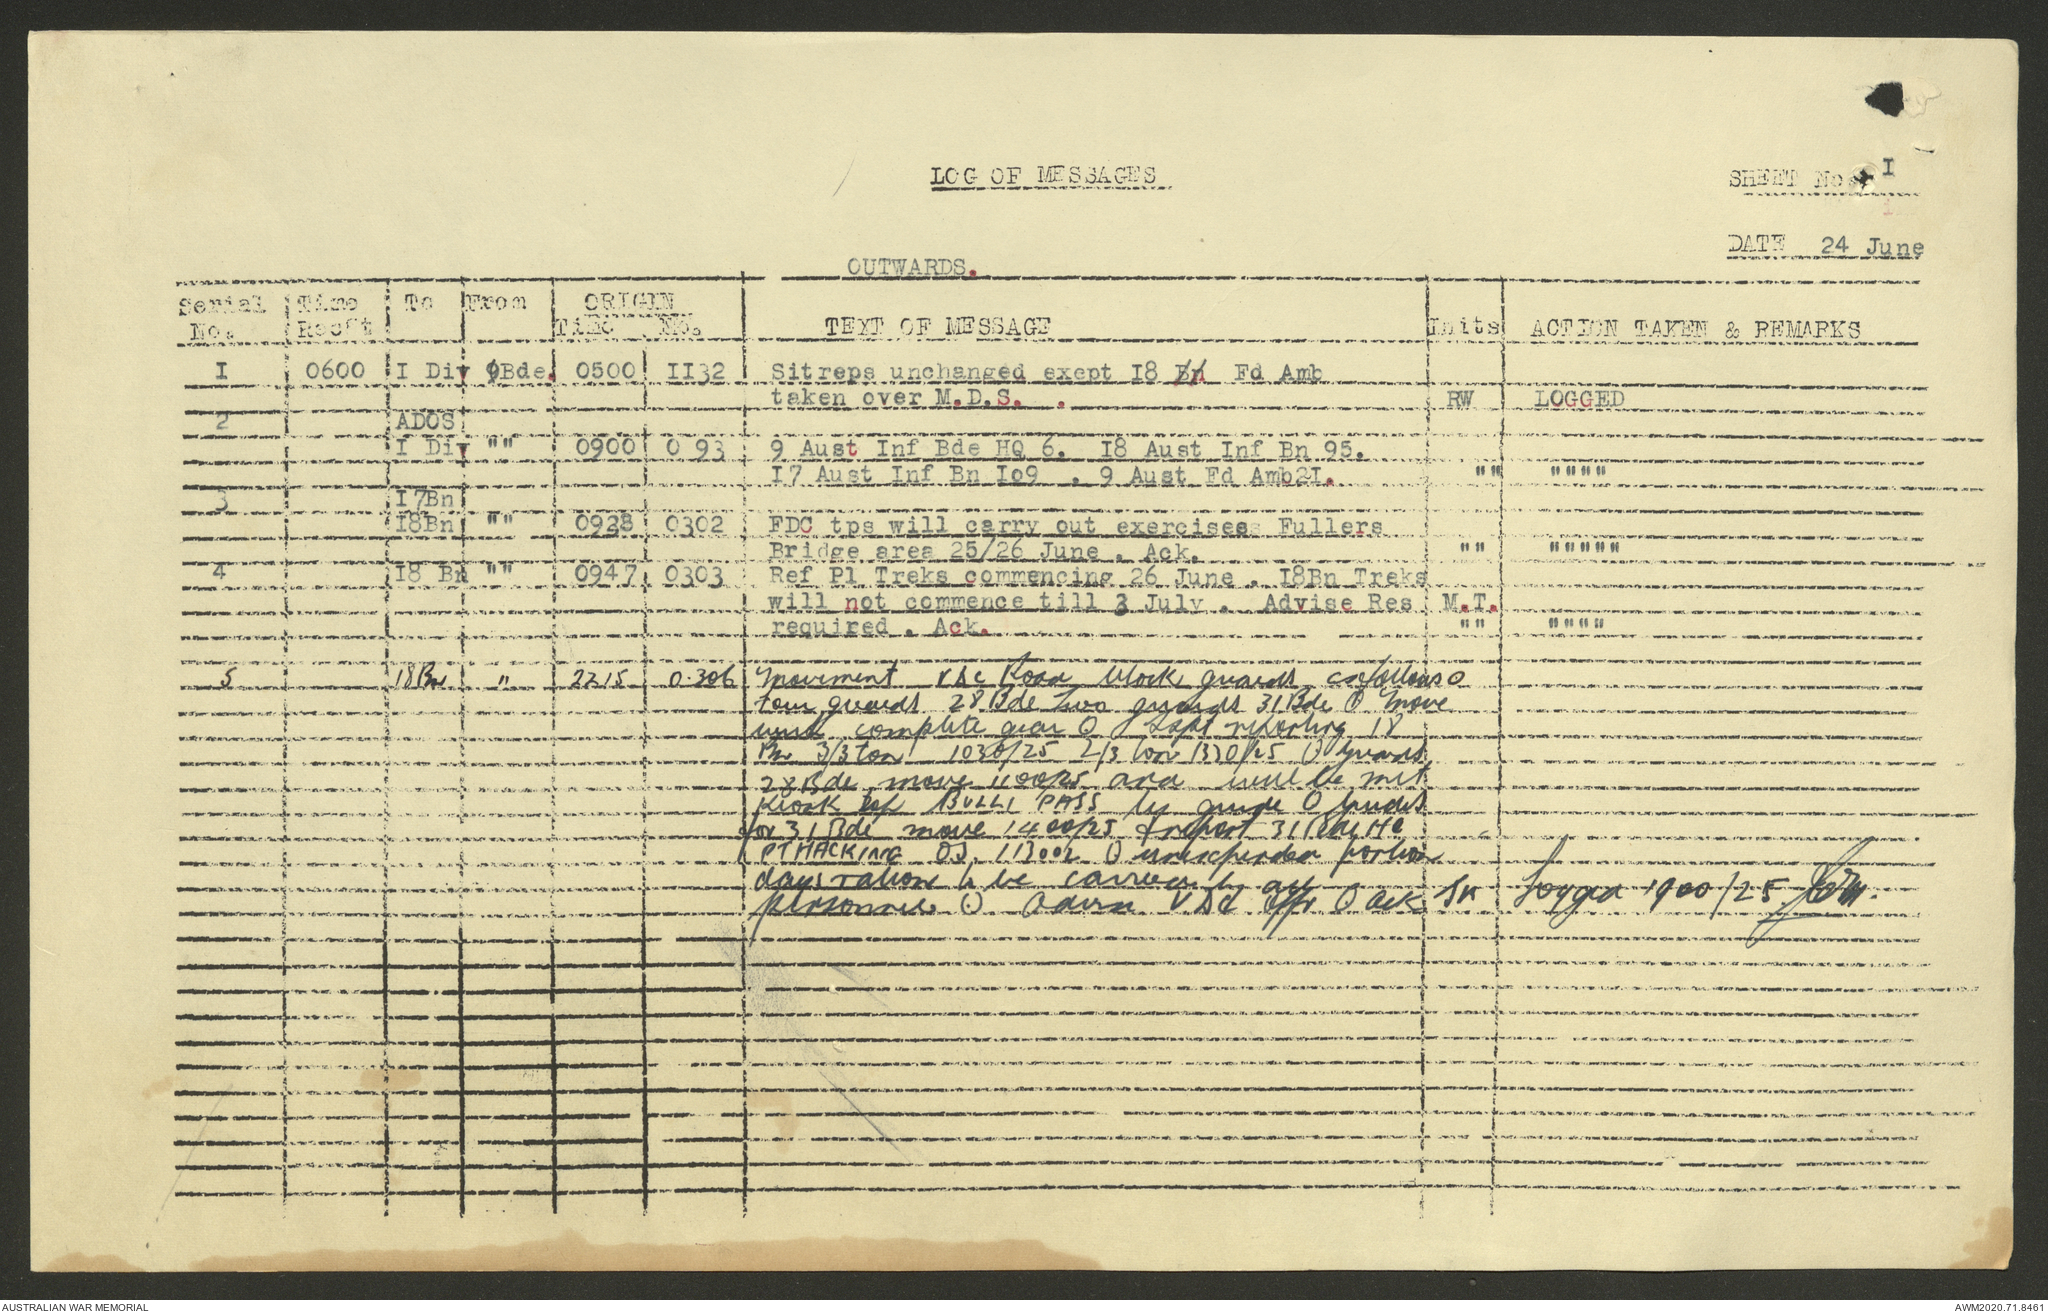 LOG OF MESSAGES
SHEET No. I
DATE 24 June
OUTWARDS.
Serial No. Time Rec't To From ORIGIN Time No. TEXT OF MESSAGE Inits ACTION TAKEN & REMARKS
I 0600 I Div 9Bde. 0500 II32 Sitreps unchanged exept I8 Bn Fd Amb
taken over M.D.S. . RW LOGGED
2 ADOS
I Div "" 0900 0 93 9 Aust Inf Bde HQ 6. I8 Aust Inf Bn 95.
I7 Aust Inf Bn Io9 . 9 Aust Fd Amb2I. "" """"
3 I7Bn
I8Bn "" 0928 0302 FDC tps will carry out exercises Fullers
Bridge area 25/26 June . Ack. "" """""
4 I8 Bn "" 0947 0303 Ref Pl Treks commencing 26 June . I8Bn Treks
will not commence till 3 July . Advise Res M.T.
required . Ack. "" """"
5 18Bn " 2215 0306 Movement VDC Road block guards as follows O
four guards 28 Bde two guards 31 Bde O Move
with complete gear O Tspt reporting 18
Bn 3/3 ton 1030/25 2/3 ton 1330/25 O Guards
28 Bde move 1100/25 and will be met
Kiosk top BULLI PASS by guide O Guards
for 31 Bde move 1400/25 & report 31 Bde HQ
PT HACKING 113002 O unexpended portion
days ration to be carried by all
personnel O Advise VDC offr O Ack Logged 1900/25
AUSTRALIAN WAR MEMORIAL
AWM2020.71.8461